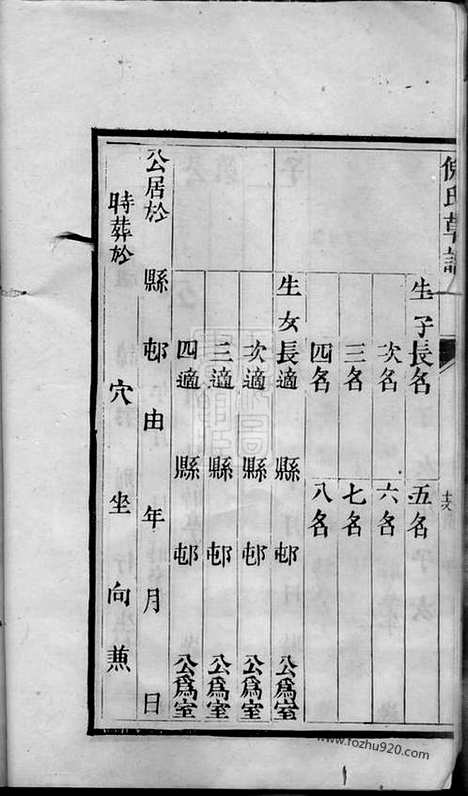 倪氏草譜
生子長名　五名
次名　六名
三名　七名
四名　八名
生女長適　縣　邨　公爲室
次適　縣　邨　公爲室
三適　縣　邨　公爲室
四適　縣　邨　公爲室
公居於　縣　邨由　年　月　日
時葬於　穴　坐　向　兼
www.fozhu920.com
1